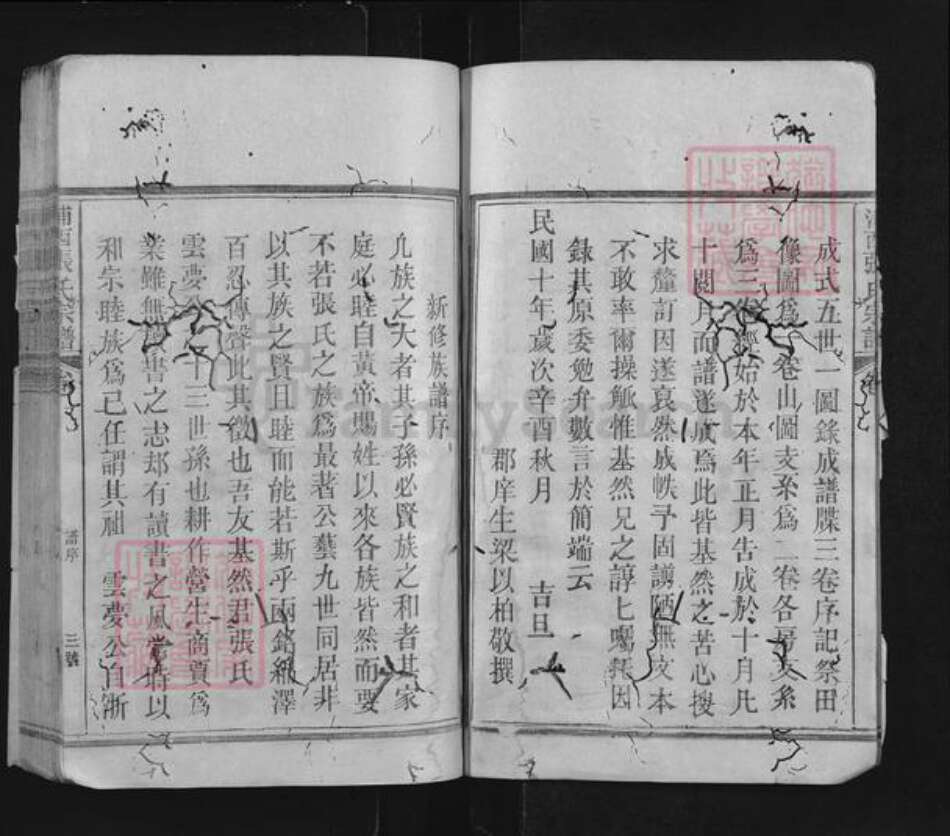 成式五世一圖錄成譜牒三卷序記祭田
像圖爲一卷山圖支系爲一卷各房支系
爲三卷經始於本年正月告成於十月凡
十閱月而譜遂成焉此皆基然之苦心搜
求釐訂因遂裒然成帙予固謭陋無文本
不敢率爾操觚惟基然兄之諄七囑托因
錄其原委勉弁數言於簡端云
郡庠生梁以柏敬撰
民國十年歲次辛酉秋月 吉旦
新修族譜序
凢族之大者其子孫必賢族之和者其家
庭必睦自黃帝賜姓以來各族皆然而要
不若張氏之族爲最著公藝九世同居非
以其族之賢且睦而能若斯乎兩銘綿澤
百忍傳聲此其徵也吾友基然君張氏
雲夢公二十三世孫也耕作營生商賈爲
業雖無讀書之志却有讀書之風嘗特以
和宗睦族爲已任謂其祖 雲夢公自浙
張氏宗譜
譜序
三號